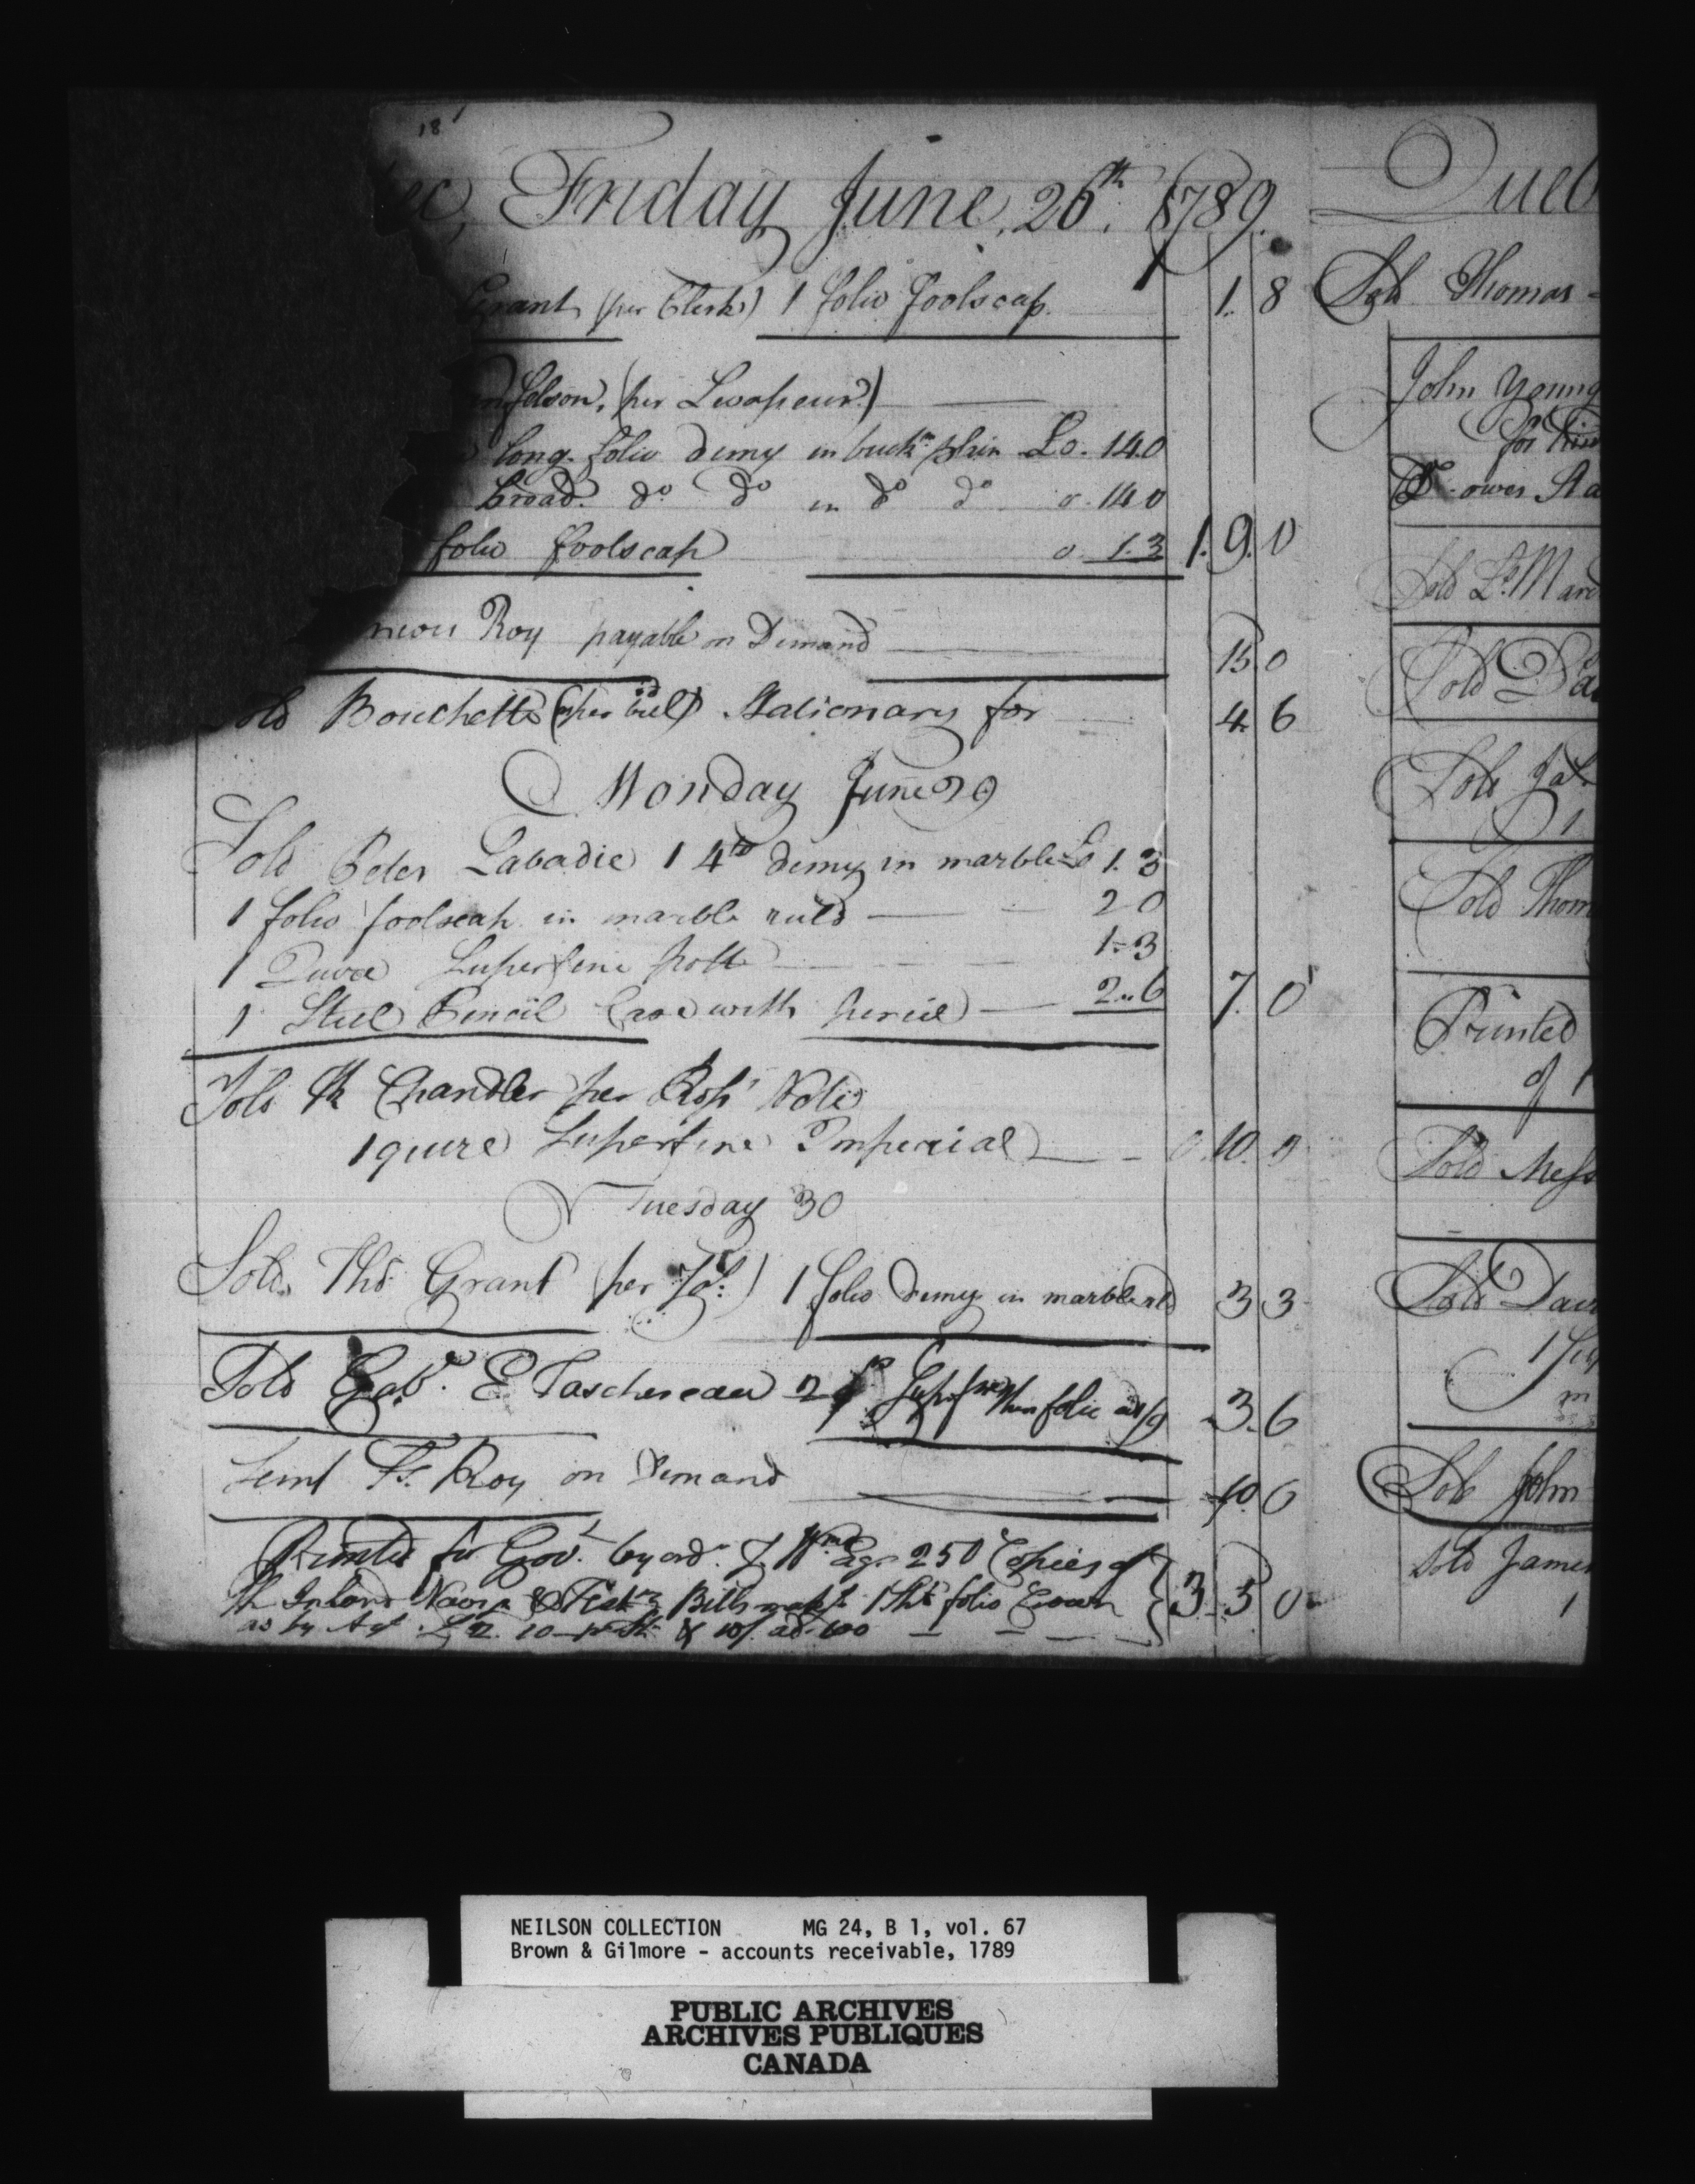 18
ec, Friday June, 26th. 1789.
Grant (per Clerk) 1 folio foolscap. 1. 8
(per Levasseur)
long folio demy in buckm. skin £0. 14.0
broad. do. do in do do o. 14 0
folio foolscap o. 1.3 1. 9. 0
Roy payable on Demand 15 0
Sold Bouchette (per bill) Stationary for 4. 6
Monday June 29
Sold Peter Labadie 1 4to demy in marble £0 1. 3
1 folio foolscap in marble ruld 2 0
1 Quire Superfine pott 1-3
1 Steel Pencil Case with pencil 2..6 7. 0
Sold K Chandler per Note
1 quire Superfine Imperial 0. 10. 0
Tuesday 30
Sold Ths Grant (per 1 folio demy in marble rld 3 3
Sold Gabl. E Taschereau 2 folio 3. 6
Lent Fs. Roy on Demand 10. 6
Printed for Govt. by ord. of 250 Copies of
Inland Navign & Bills 1 Sht folio Crown } 3. 5 0
as by 100
Queb
Sold Thomas
John Young
for
Do. owes Sta
Sold
Sold Da
Sold
1
Sold Thom
Printed
of 1
Sold Mess
Sold Davi
1
m
Sold John
Sold James
1
NEILSON COLLECTION MG 24, B 1, vol. 67
Brown & Gilmore - accounts receivable, 1789
PUBLIC ARCHIVES
ARCHIVES PUBLIQUES
CANADA